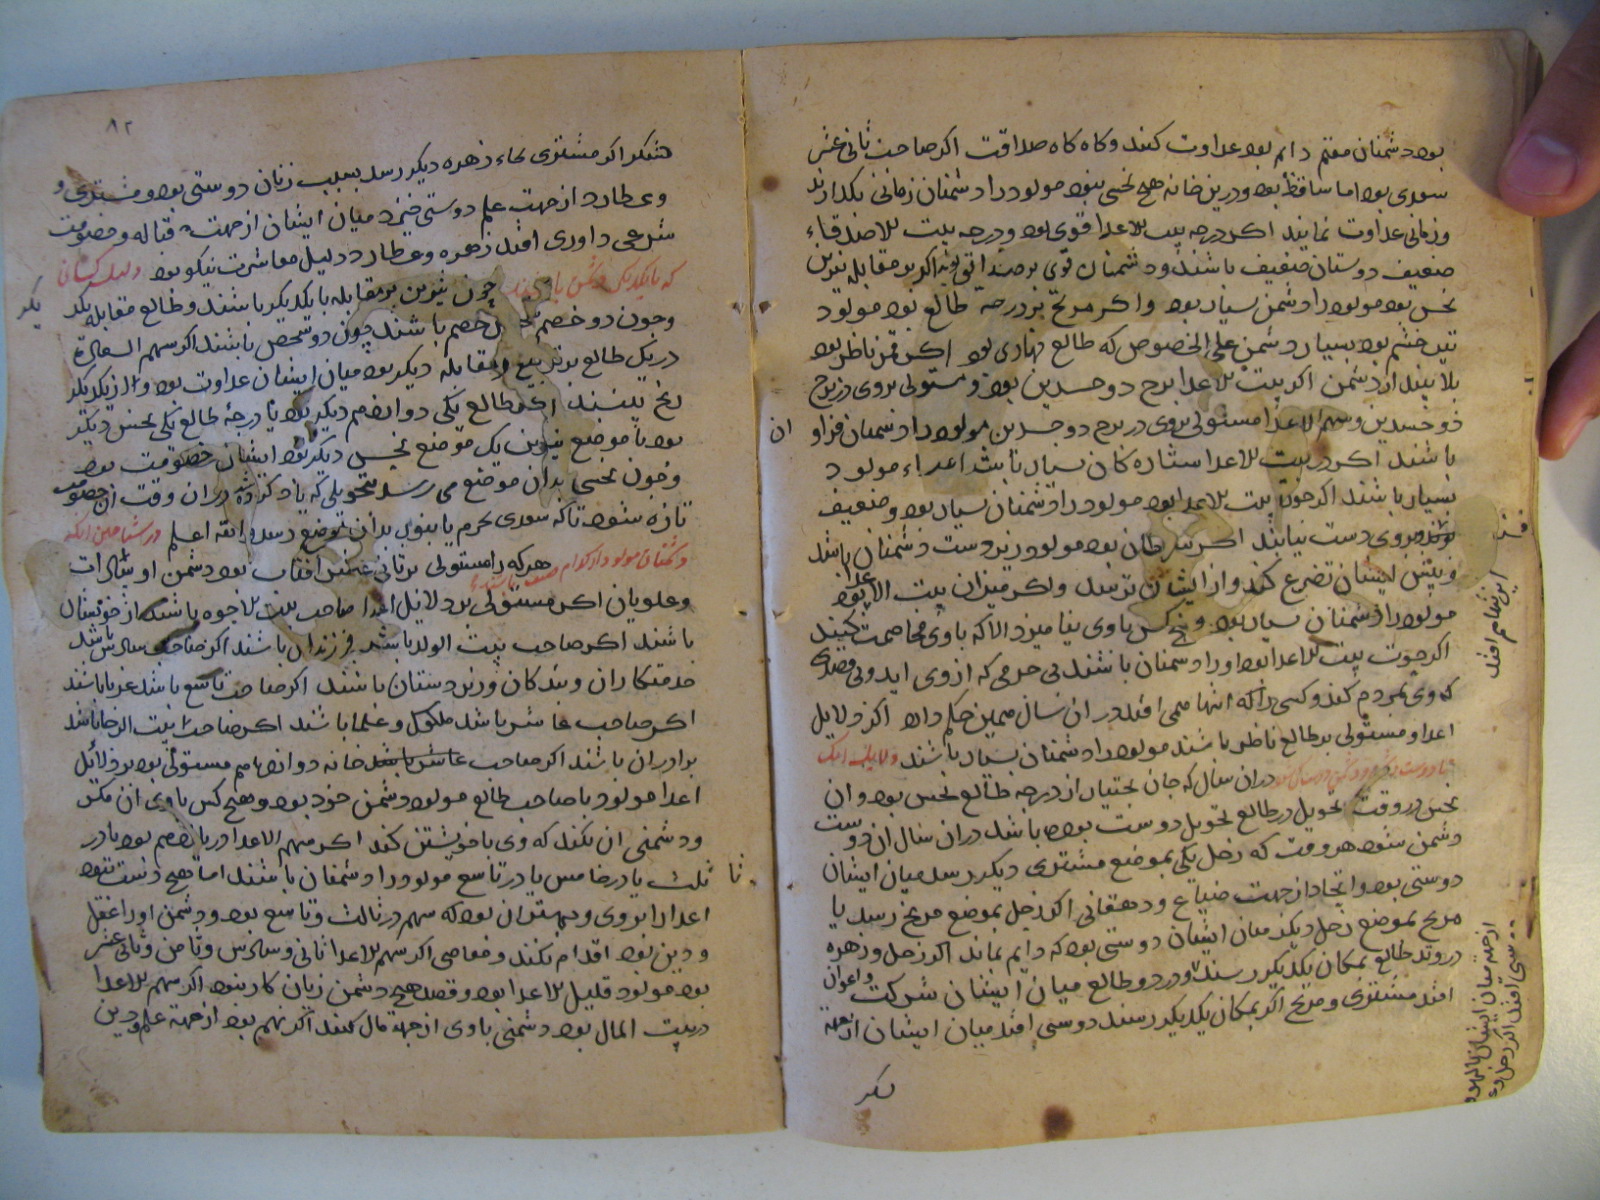 بود دشمنان مقیم دایم بود عداوت کنند و کاه کاه صداقت اکر صاحب ثانی عشر
سعدی بود اما ساقط بود و درین خانه هیچ نحسی نبود مولود را دشمنان زمانی بکدارند
و زمانی عداوت نمایند اکر درجه بیت الاعدا قوی بود و درجه بیت الاصدقاء
ضعیف دوستان ضعیف باشند و دشمنان قوی بر ضد اکر بر مقابله نیرین
نحس بود مولود را دشمن بسیار بود و اکر مریخ بر درجه طالع بود مولود
تیز خشم بود بسیار دشمن علی الخصوص که طالع نهاری بود اکر قمر ناظر بود
بلا بیند از دشمن اکر بیت الاعدا برج ذو جسدین بود و مستولی بروی در برج
ذو جسدین و سهم الاعدا مستولی بروی در برج ذو جسدین مولود را دشمنان فراوان
باشند اکر در بیت الاعدا ستاره کان بسیار باشند اعداء مولود
بسیار باشند اکر حوت بیت الاعدا بود مولود را دشمنان بسیار بود و ضعیف
بروی دست نیابند اکر سرطان بود مولود زبردست دشمنان باشد
و پیش ایشان تضرع کند و از ایشان ترسد و اکر میزان بیت الاعدا بود
مولود را دشمنان بسیار بود و هیچ کس با وی نیامیزد الا که با وی مخاصمت کنند
اکر حوت بیت الاعدا بود او را دشمنان باشند بی جرمی که از وی اید و بی قصدی
که وی بمردم کند و کسی را که انتها می افتد در ان سال همین حکم دارد اکر دلایل
اعدا و مستولی بر طالع ناظر باشند مولود را دشمنان بسیار باشند دلایل انک
در ان سال که جان بختیان از درجه طالع نحس بود و ان
نحس در وقت تحویل در طالع تحویل دوست بود باشد در ان سال ان دوست
دشمن شود هر وقت که زحل یکی بموضع مشتری دیکر رسد میان ایشان
دوستی بود و اتحاد از جهت ضیاع و دهقانی اکر زحل بموضع مریخ رسد یا
مریخ بموضع زحل دیکر میان ایشان دوستی بود که دایم بماند اکر زحل و زهره
در وتد طالع بمکان یکدیکر رسند و در دو طالع میان ایشان شرکت و اعوان
افتد مشتری و مریخ اکر بمکان یکدیکر رسند دوستی افتد میان ایشان از جهة
ایشان هم افتد
از جهة میان ایشان
افتد اکر زحل و
۸۲
اکر مشتری بجاء زهره دیکر رسد بسبب زنان دوستی بود و مشتری و
و عطارد از جهت علم دوستی خیزد میان ایشان از جهت قباله و خصومت
شرعی و داوری افتد زهره و عطارد دلیل معاشرت نیکو بود دلیل کسانی
که با یکدیکر دشمن باشند چون نیرین بر مقابله یا یکدیکر باشند و طالع مقابله یکدیکر
و چون دو خصم باشند چون دو شخص باشند اکر سهم السعادة
در یک طالع بر تربیع و مقابله دیکر بود میان ایشان عداوت بود و از یکدیکر
رنج بینند اکر طالع یکی دوازدهم دیکر بود یا درجه طالع یکی نحس دیکر
بود یا موضع نیرین یک موضع نحس دیکر بود ایشان خصومت بود
و چون نحسی بدان موضع می رسد بتحویلی که یاد کرده شد در ان وقت ان خصومت
تازه شود تا که سعدی بجرم یا بنور بدان موضع رسد والله اعلم در شناختن انکه
دشمنان مولود از کدام صنف باشند هر که را مستولی بر ثانی عشر افتاب بود دشمن او
و علویان اکر مستولی بر دلایل اعدا صاحب بیت الاخوه باشد از خویشان
باشند اکر صاحب بیت الولد باشد فرزندان باشند اکر صاحب سادس باشد
خدمتکاران و بندکان و زیردستان باشند اکر صاحب تاسع باشد غربا باشند
اکر صاحب عاشر باشد ملوک و علما باشند اکر صاحب بیت الرجا باشد
برادران باشند اکر صاحب خانه دوازدهم مستولی بود بر دلائل
اعدا مولود یا صاحب طالع مولود دشمن خود بود و هیچ کس با وی ان مکر
و دشمنی ان نکند که وی با خویشتن کند اکر سهم الاعدا در یازدهم بود یا در
ثالث یا در خامس یا در تاسع مولود را دشمنان باشند اما هیچ دست نبود
اعدا را بروی و بهتر ان بود که سهم در ثالث و تاسع بود و دشمن او را عقل
و دین بود اقدام نکنند و معاصی اکر سهم الاعدا ثانی و سادس و ثامن و ثانی عشر
بود مولود قلیل الاعدا بود و قصد هیچ دشمن زیان کار نبود اکر سهم الاعدا
در بیت المال بود دشمنی با وی از جهة مال کنند اکر نهم بود از جهة علم و دین